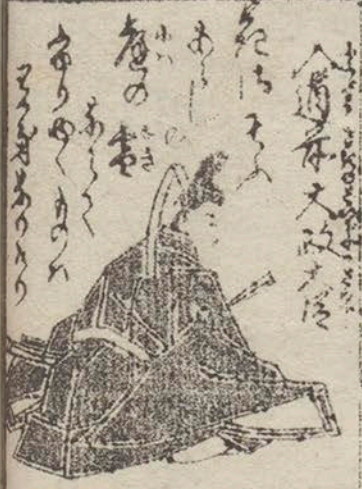 入道前大政大臣
花さそふ
あらしの
庭の雪
ならで
ふりゆくものハ
わが身なりけり